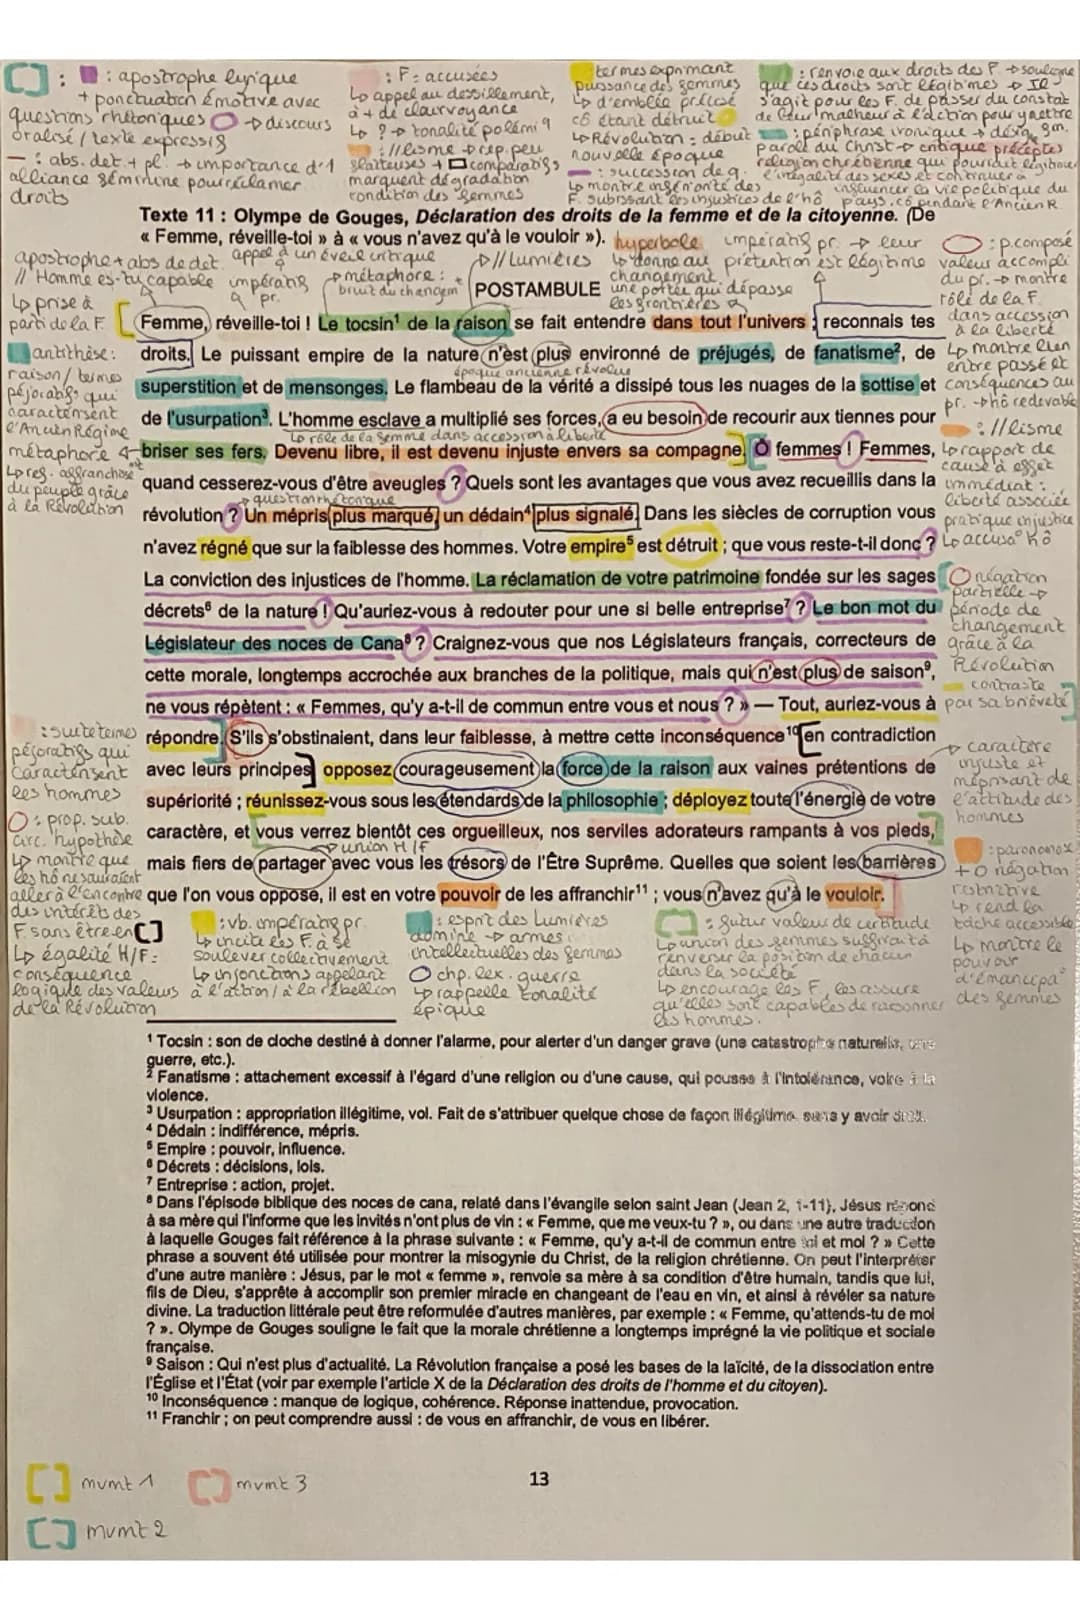 : apostrophe lyrique
+ ponctuation émotive avec
questions rhétoriques → discours
oralisé / texte expressif
— : abs. det. + pl. → importance d'1
alliance féminine pour réclamer
droits
: F = accusées
↳ appel au dessillement,
à + de clairvoyance
↳ ? → tonalité polémiq
: //lisme → rép. peu
flatteuses + □ comparatifs
marquent dégradation
condition des femmes
termes exprimant
puissance des femmes
↳ d'emblée précisé
cô étant détruit
↳ Révolution = début
nouvelle époque
— : succession de q.
↳ montre ingéniorité des
F. subissant les injustices de l'hô
: renvoie aux droits des F. → souligne
que ces droits sont légitimes → Il
s'agit pour les F. de passer du constat
de leur malheur à l'action pour y mettre
: périphrase ironique → désig. gm.
parole du Christ → critique préceptes
religion chrétienne qui pourrait légitimer
l'inégalité des sexes et continuer à
influencer la vie politique du
pays, cô pendant l'Ancien R
Texte 11 : Olympe de Gouges, Déclaration des droits de la femme et de la citoyenne. (De
« Femme, réveille-toi » à « vous n'avez qu'à le vouloir »).
apostrophe + abs de det.
// Homme es-tu capable
↳ prise à
parti de la F.
appel à un éveil critique
impératif
pr.
→ métaphore :
bruit du changemt
→ // Lumières
hyperbole
↳ donne au
changement
une portée qui dépasse
les frontières
impératif pr. → leur
prétention est légitime
POSTAMBULE
: p. composé
valeur accompli
du pr. → montre
rôle de la F.
dans accession
à la liberté
↳ montre lien
entre passé et
conséquences au
pr. → hô redevable
Femme, réveille-toi ! Le tocsin¹ de la raison se fait entendre dans tout l'univers ; reconnais tes
droits. Le puissant empire de la nature n'est plus environné de préjugés, de fanatisme², de
époque ancienne révolue
superstition et de mensonges. Le flambeau de la vérité a dissipé tous les nuages de la sottise et
de l'usurpation³. L'homme esclave a multiplié ses forces, a eu besoin de recourir aux tiennes pour
↳ rôle de la femme dans accession à liberté
briser ses fers. Devenu libre, il est devenu injuste envers sa compagne. Ô femmes ! Femmes,
quand cesserez-vous d'être aveugles ? Quels sont les avantages que vous avez recueillis dans la
→ question rhétorique
révolution ? Un mépris plus marqué, un dédain⁴ plus signalé. Dans les siècles de corruption vous
n'avez régné que sur la faiblesse des hommes. Votre empire⁵ est détruit ; que vous reste-t-il donc ?
La conviction des injustices de l'homme. La réclamation de votre patrimoine fondée sur les sages
décrets⁶ de la nature ! Qu'auriez-vous à redouter pour une si belle entreprise⁷ ? Le bon mot du
Législateur des noces de Cana⁸ ? Craignez-vous que nos Législateurs français, correcteurs de
cette morale, longtemps accrochée aux branches de la politique, mais qui n'est plus de saison⁹,
ne vous répètent : « Femmes, qu'y a-t-il de commun entre vous et nous ? » — Tout, auriez-vous à
répondre. S'ils s'obstinaient, dans leur faiblesse, à mettre cette inconséquence¹⁰ en contradiction
avec leurs principes, opposez courageusement la force de la raison aux vaines prétentions de
supériorité ; réunissez-vous sous les étendards de la philosophie ; déployez toute l'énergie de votre
caractère, et vous verrez bientôt ces orgueilleux, nos serviles adorateurs rampants à vos pieds,
→ union H/F
mais fiers de partager avec vous les trésors de l'Être Suprême. Quelles que soient les barrières
que l'on vous oppose, il est en votre pouvoir de les affranchir¹¹ ; vous n'avez qu'à le vouloir.
antithèse :
raison / termes
péjoratifs qui
caractérisent
l'Ancien Régime
métaphore
↳ reg. affranchisse
du peuple grâce
à la Révolution
: //lisme
↳ rapport de
cause à effet
immédiat :
liberté associée
pratique injustice
↳ accusa° hô
négation
partielle →
période de
changement
grâce à la
Révolution
contraste
par sa brièveté
→ caractère
injuste et
méprisant de
l'attitude des
hommes
: suite termes
péjoratifs qui
caractérisent
les hommes
: prop. sub.
circ. hypothèse
↳ montre que
les hô ne sauraient
aller à l'encontre
des intérêts des
F. sans être en [ ]
↳ égalité H/F =
conséquence
logique des valeurs
de la Révolution
: vb. impératif pr.
↳ incite les F. à se
soulever collectivement
↳ injonctions appelant
à l'action / à la rébellion
: esprit des Lumières
domine → armes
intellectuelles des femmes
chp. lex. guerre
↳ rappelle tonalité
épique
: futur valeur de certitude
↳ union des femmes suffirait à
renverser la position de chacun
dans la société
↳ encourage les F, les assure
qu'elles sont capables de raisonner
les hommes.
: paronomase
+ négation
restrictive
↳ rend la
tâche accessible
↳ montre le
pouvoir
d'émancipa°
des femmes
¹ Tocsin : son de cloche destiné à donner l'alarme, pour alerter d'un danger grave (une catastrophe naturelle, une
guerre, etc.).
² Fanatisme : attachement excessif à l'égard d'une religion ou d'une cause, qui pousse à l'intolérance, voire à la
violence.
³ Usurpation : appropriation illégitime, vol. Fait de s'attribuer quelque chose de façon illégitime, sans y avoir droit.
⁴ Dédain : indifférence, mépris.
⁵ Empire : pouvoir, influence.
⁶ Décrets : décisions, lois.
⁷ Entreprise : action, projet.
⁸ Dans l'épisode biblique des noces de cana, relaté dans l'évangile selon saint Jean (Jean 2, 1-11), Jésus répond
à sa mère qui l'informe que les invités n'ont plus de vin : « Femme, que me veux-tu ? », ou dans une autre traduction
à laquelle Gouges fait référence à la phrase suivante : « Femme, qu'y a-t-il de commun entre toi et moi ? » Cette
phrase a souvent été utilisée pour montrer la misogynie du Christ, de la religion chrétienne. On peut l'interpréter
d'une autre manière : Jésus, par le mot « femme », renvoie sa mère à sa condition d'être humain, tandis que lui,
fils de Dieu, s'apprête à accomplir son premier miracle en changeant de l'eau en vin, et ainsi à révéler sa nature
divine. La traduction littérale peut être reformulée d'autres manières, par exemple : « Femme, qu'attends-tu de moi
? ». Olympe de Gouges souligne le fait que la morale chrétienne a longtemps imprégné la vie politique et sociale
française.
⁹ Saison : Qui n'est plus d'actualité. La Révolution française a posé les bases de la laïcité, de la dissociation entre
l'Église et l'État (voir par exemple l'article X de la Déclaration des droits de l'homme et du citoyen).
¹⁰ Inconséquence : manque de logique, cohérence. Réponse inattendue, provocation.
¹¹ Franchir ; on peut comprendre aussi : de vous en affranchir, de vous en libérer.
[ ] mvmt 1
[ ] mvmt 3
13
[ ] mvmt 2